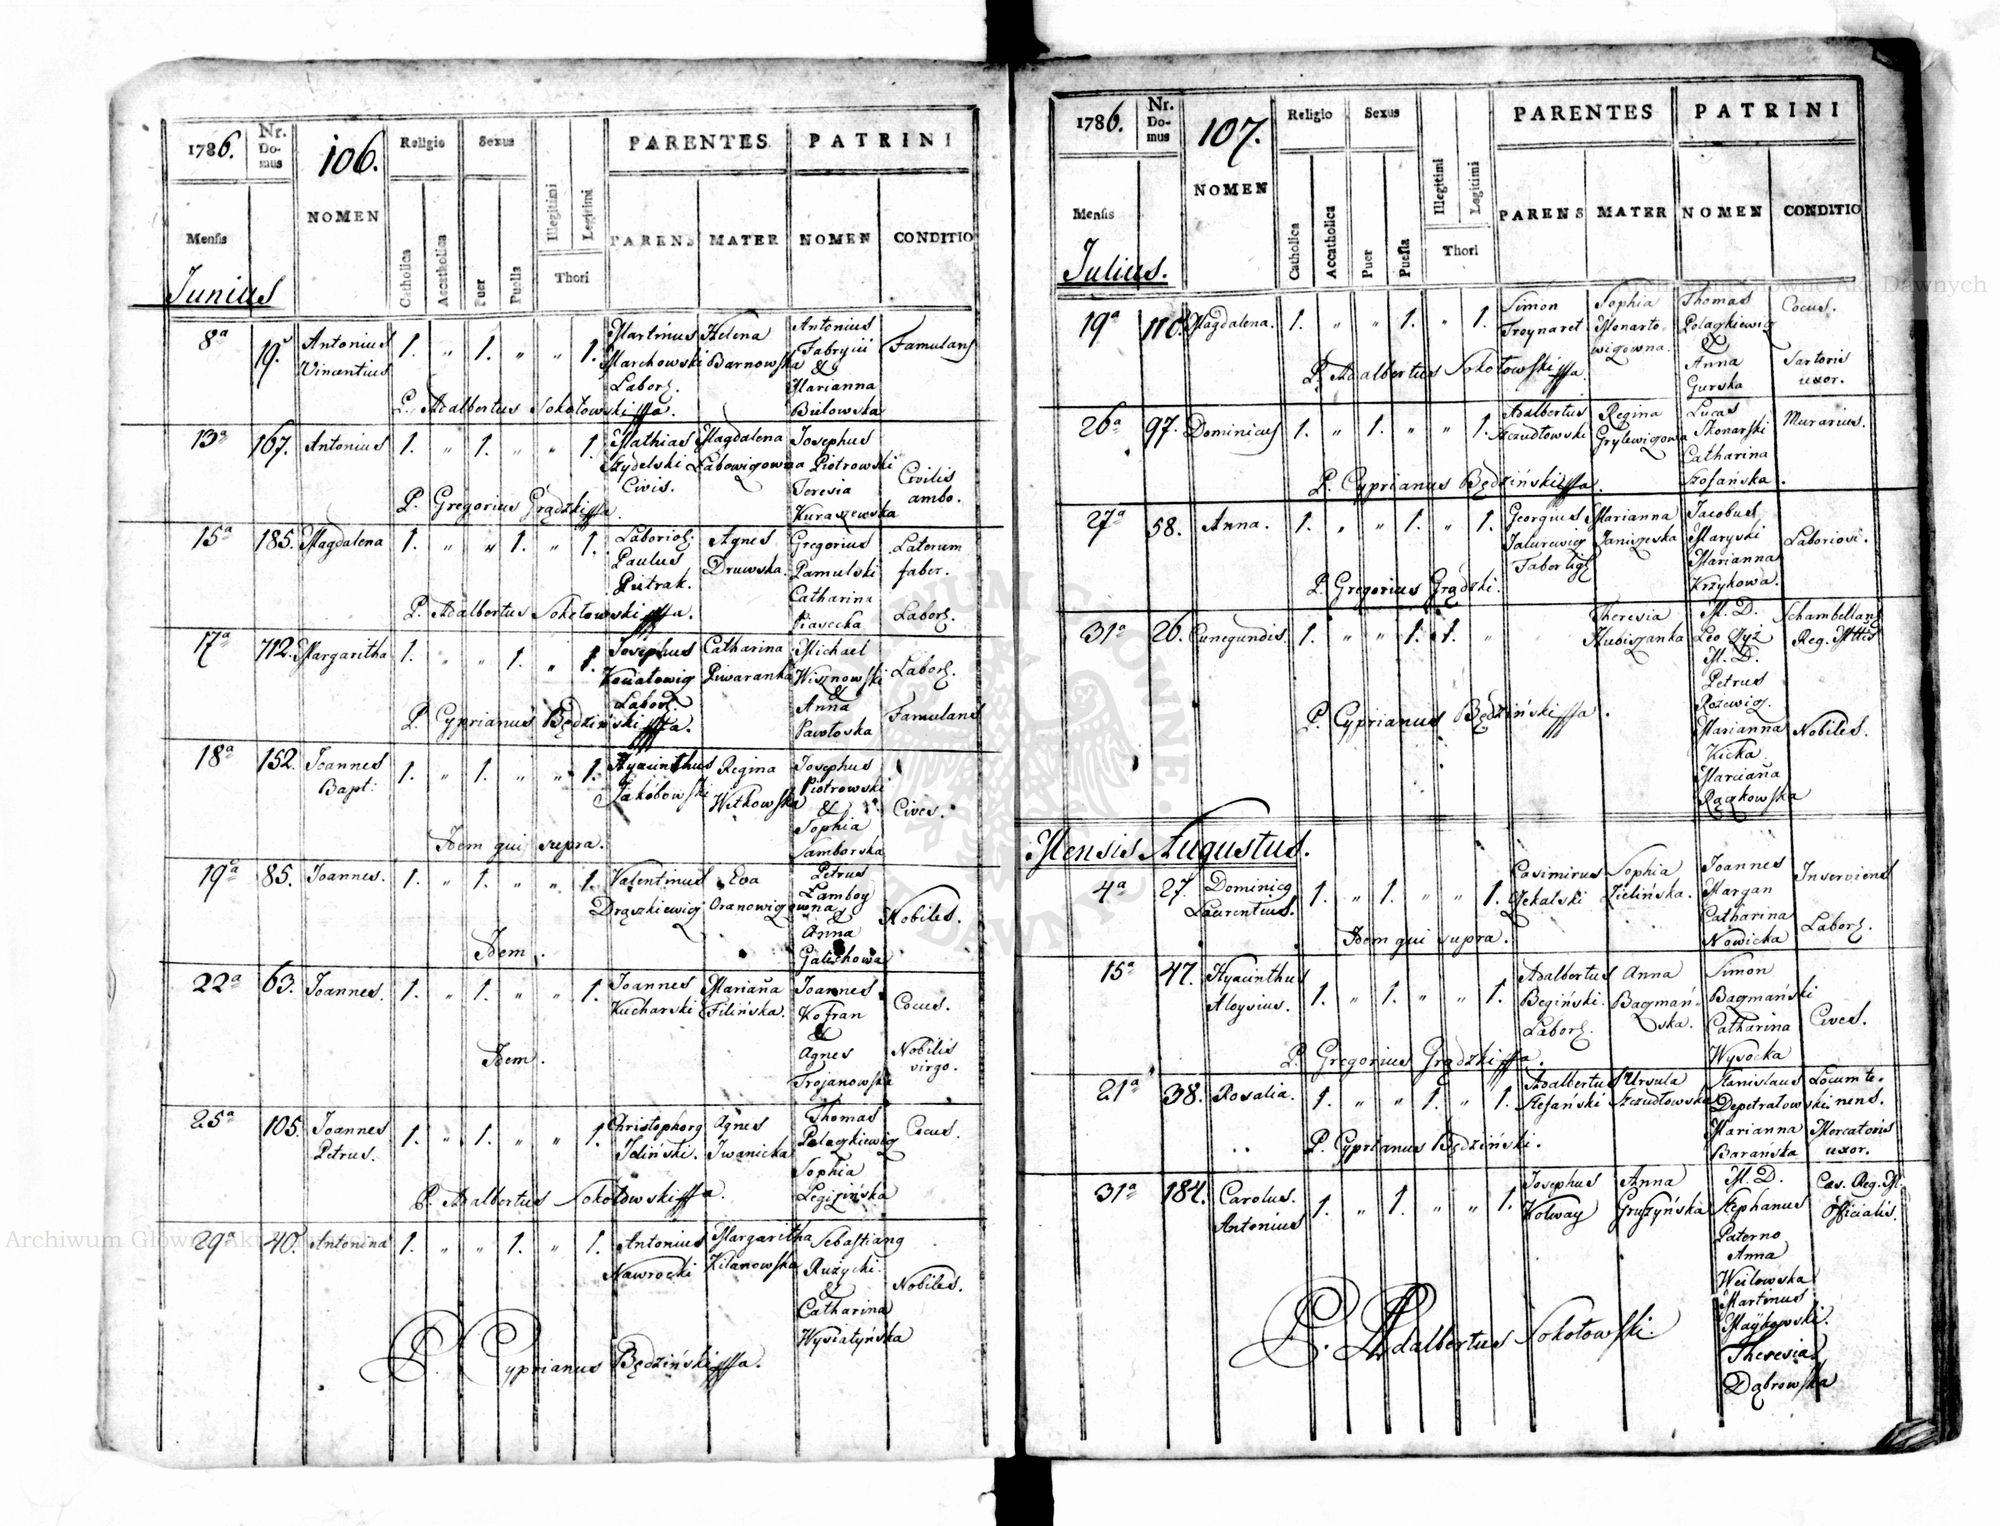 1786.
Nr. Do- mus
106.
NOMEN
Religio
Sexus
Catholica
Accatholica
Puer
Puella
Illegitimi
Legitimi
Thori
PARENTES
PATRINI
PARENS
MATER
NOMEN
CONDITIO
Mensis
Junius
8ª 19. Antonius 1. " 1. " " 1. Martinus Helena Antonius Famulans
Vincentius Marchowski Barnowska Fabrycii
Labor. &
Marianna
P. Adalbertus Sokołowski Bielowska
13ª 167. Antonius 1. " 1. " " 1. Mathias Magdalena Josephus
Szydelski Labowiczowna Piotrowski Civilis
Civis. Teresia ambo.
P. Gregorius Grądzki Kuraszewska
15ª 185. Magdalena 1. " " 1. " 1. Labor. Agnes Gregorius Laterum
Paulus Druwska. Pamulski faber.
Pietrak. Catharina
P. Adalbertus Sokołowski Piasecka Labor.
17ª 712. Margaritha 1. " " 1. " 1. Josephus Catharina Michael
Piwaranka Wisznowski Labor.
Labor. &
Anna
P. Cyprianus Będziński Pawłoska Famulans
18ª 152. Joannes 1. " 1. " " 1. Hyacinthus Regina Josephus
Bapt: Jakobowski Witkowska Piotrowski
& Cives.
Sophia
Idem qui supra. Samborska
19ª 85. Joannes. 1. " 1. " " 1. Valentinus Eva Petrus
Drążkiewicz Oranowiczowna Lamboy
& Nobiles.
Anna
Idem.
22ª 63. Joannes. 1. " 1. " " 1. Joannes Mariaña Joannes
Kucharski Filińska. Kofran Cocus.
&
Idem. Agnes Nobilis
Trojanowska virgo.
25ª 105. Joannes 1. " 1. " " 1. Agnes Thomas Cocus.
Petrus. Jeliński. Iwanicka Polaczkiewicz
Sophia
P. Adalbertus Sokołowski Legizińska
29ª 40. Antonina 1. " " 1. " 1. Antonius Margaritha
Nawrocki Kilanowska Rużycki. Nobiles.
&
Catharina
Wysiatyńska
P. Cyprianus Będziński
1786.
Nr. Do- mus
107.
NOMEN
Religio
Sexus
Catholica
Accatholica
Puer
Puella
Illegitimi
Legitimi
Thori
PARENTES
PATRINI
PARENS
MATER
NOMEN
CONDITIO
Mensis
Julius.
19ª 110. Magdalena. 1. " " 1. " 1. Simon Sophia Thomas Cocus.
Troynaret Monarto- Polaczkiewicz
wiczowna. &
Anna Sartoris
P. Adalbertus Sokołowski Gurska uxor.
26ª 97. Dominicus 1. " 1. " " 1. Adalbertus Regina Lucas Murarius.
Szczudłowski Grylewiczowna Skonarski
Catharina
P. Cyprianus Będziński Szofańska
27ª 58. Anna. 1. " " 1. " 1. Georgius Marianna Jacobus
Janiszeska Maryski Laboriosi.
Marianna
P. Gregorius Grądzki. Krzykowa.
31ª 26. Cunegundis. 1. " " 1. 1. " Theresia M. D. Schambellans
Kubiszanka Leo Reg. Mttis
M. D.
Petrus
P. Cyprianus Będziński Rożewicz.
Marianna Nobiles.
Kicka
Marciaña
Rączkowska
Mensis Augustus.
4ª 27. 1. " 1. " " 1. Casimirus Sophia Joannes Inserviens
Laurentius. Czekalski Zielińska. Margan
Catharina Labor.
Idem qui supra. Nowicka
15ª 47. Hyacinthus 1. " 1. " " 1. Adalbertus Anna Simon
Aloysius. Begiński. Bagmań- Bagmański
Labor. ska. Catharina Cives.
P. Gregorius Grądzki Wysocka
21ª 38. Rosalia. 1. " " 1. " 1. Adalbertus Ursula Stanislaus Locum te-
Stefański Szczudłowska Depetratowski nens.
Marianna Mercatoris
P. Cyprianus Będziński. Barańska uxor.
31ª 184. Carolus. 1. " 1. " " 1. Josephus Anna M. D. Cas. Reg. M.
Antonius Kolway Gruszyńska Stephanus Officialis.
Paterno
Anna
Weilowska
Martinus
Maykowski.
Theresia
Dąbrowska
P. Adalbertus Sokołowski.
Archiwum Główne Akt Dawnych